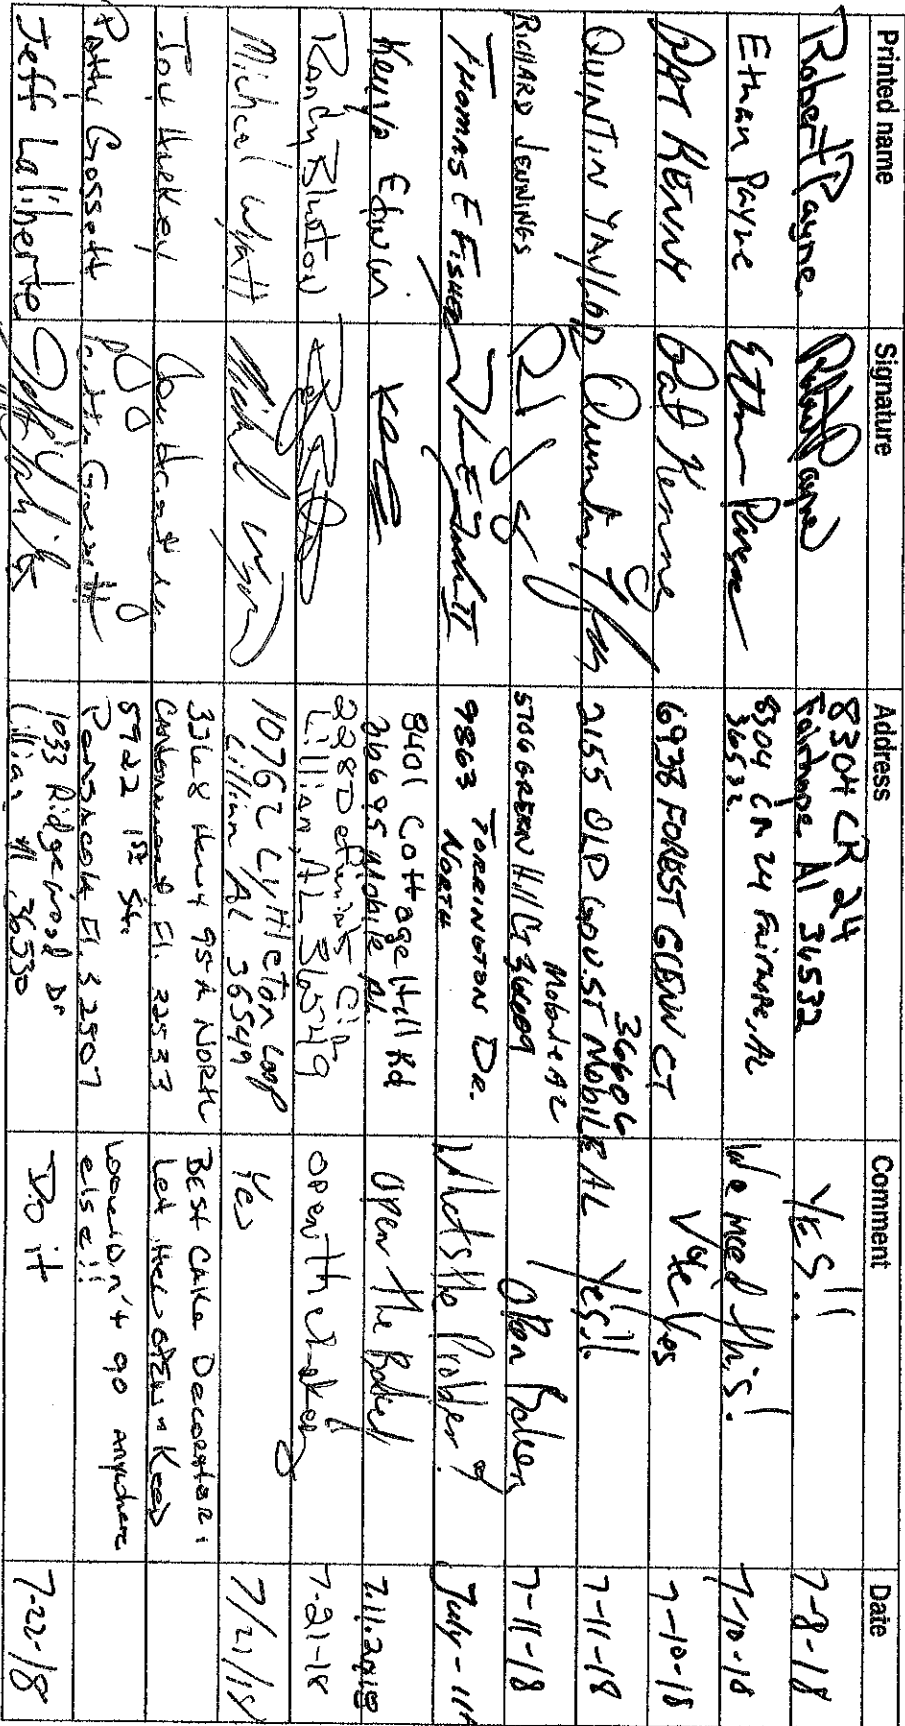 Printed name Signature Address Comment Date
Robert Payne Robert Payne 8304 CR 24
Fairhope Al 36532 YES!! 7-8-18
Ethan Payne Ethan Payne 8304 CR 24 Fairhope, AL
36532 We need this! 7-10-18
PAT KENNY Pat Kenny 6938 FOREST GLENN CT Yes 7-10-18
QUINTIN TAYLOR Quintin 2155 OLD GOV. ST MobilE AL
36606 Yes!! 7-11-18
RICHARD JENNINGS 5706 GREEN Hill CT 36609
Mobile AL Open 7-11-18
THOMAS E FISHER 9863 TORRINGTON DR.
NORTH Whats the Problem? July-11
Kenya KOE 8401 Cottage Hill Rd
36695 Mobile Al. Open the 7.11.2018
Randy Lillian, AL 36549 open the bakery 7-21-18
Micheal Wyatt 10762 Lyttleton Loop
Lillian AL 36549 Yes 7/21/18
3368 Hwy 95A NORTH
Cantonment, Fl. 32533 BEST CAKE Decorator!
Let Her OPEN
Patti Gossett 5922 1st St.
Pensacola Fl. 32507 Wouldn't go anywhere
else!!
Jeff Laliberte 1033 Ridgewood Dr
Lillian Al, 36530 Do it 7-22-18